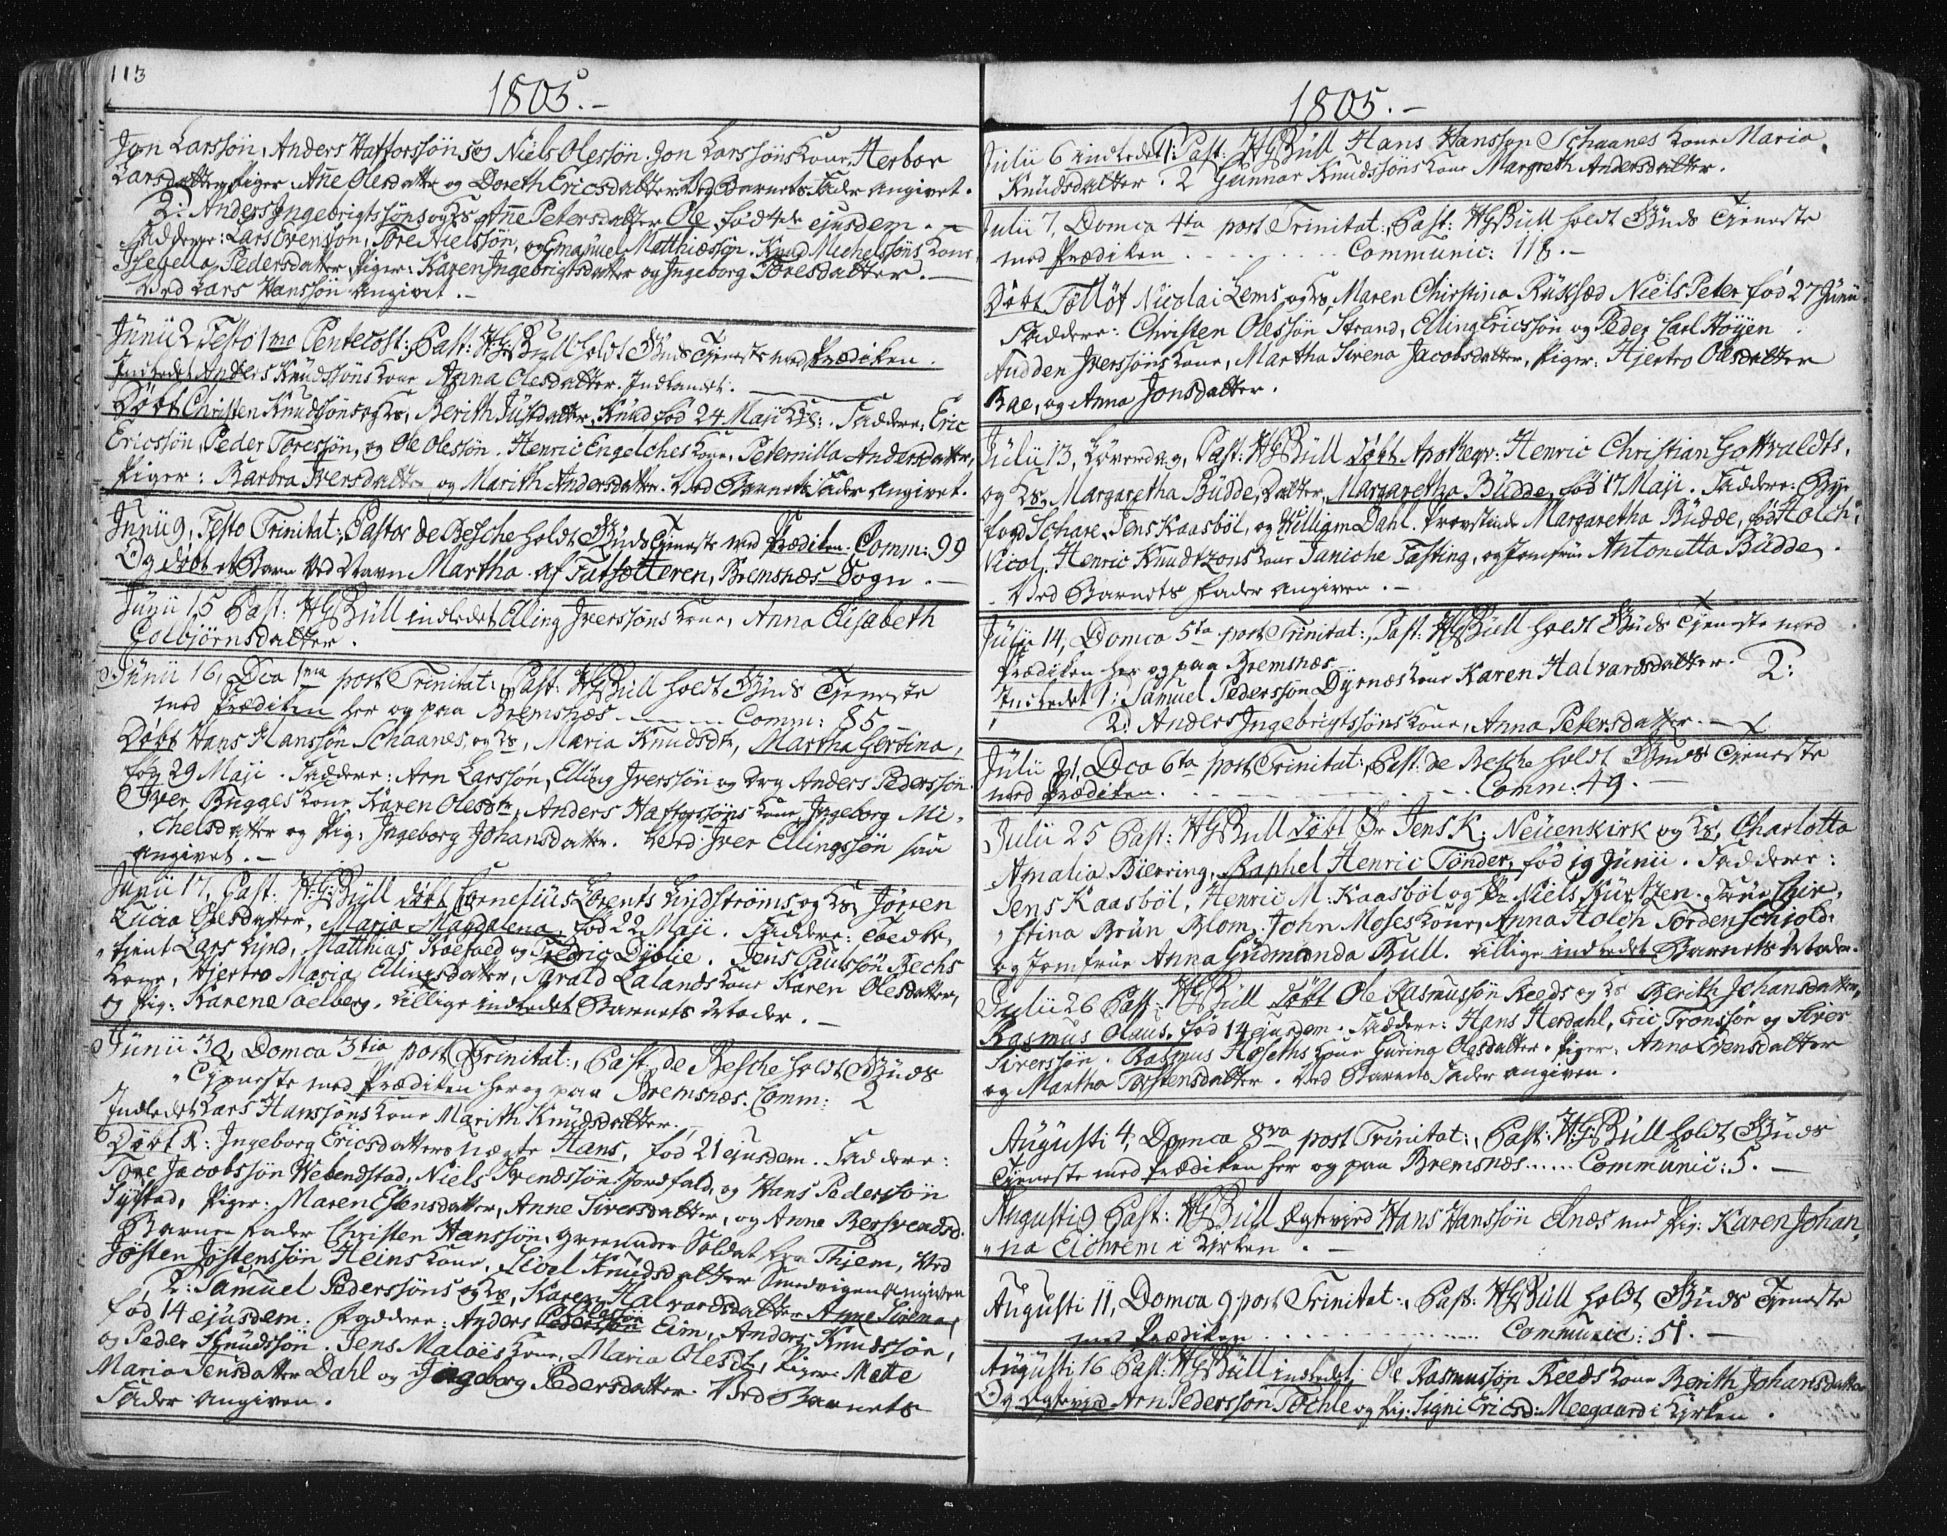 113
1805.-
Jon Larssøn, Anders Hafforssøn og Niels Olessøn. Jon Larssøns Kone, Herbor
Larsdatter, Piger Añe Olesdatter og Doreth Ericsdatter. Ved Barnets Fader Angivet.
2: Anders Ingebrigtssøns og Ks. Añe Petersdatter Ole, fød 4de ejusdem. -
Faddere: Lars Evensøn, Tore Nielssøn, og Emanuel Matthiessøn. Knud Michelssøns Kone
Isebella Pedersdatter, Piger: Karen Ingebrigtsdatter og Ingeborg Toresdatter. -
Ved Lars Hanssøn Angivet. -
Junii 2, Festo 1mo Pentecost:, Past: HG Bull holdt Guds Tjeneste med Prædiken.
Indledet Anders Knudssøns Kone Anna Olesdatter. Indlandet.
Døbt Christen Knudssøns og Ks, Berith Justdatter, Knud fød 24 Maji. Faddere: Eric
Ericssøn, Peder Toressøn, og Ole Olessøn. Henric Engelches Kone, Peternilla Andersdatter,
Piger: Barbra Iversdatter og Marith Andersdatter. Ved Barnets Fader Angivet.
Junii 9, Festo Trinitat:, Pastor de Besche holdt Guds Tjeneste med Prædiken. Comm: 99
Og døbt et Barn ved Navn Martha af Futsætteren, Bremsnæs Sogn. -
Junii 15 Past: HG Bull indledet Elling Iverssøns Kone, Anna Elisabeth
Colbjørnsdatter.
Junii 16, Dca 1ma post Trinitat:, Past: HG Bull holdt Guds Tjeneste
med Prædiken her og paa Bremsnæs ------ Comm: 85 -
Døbt Hans Hanssøn Schaanes, og Ks, Maria Knudsdtr, Martha Gerbina,
fød 29 Maji. Faddere: Arn Larssøn, Elling Iverssøn og Anders Pederssøn.
Iver Bugges Kone, Karen Olesdtr, Anders Hafforssøns Kone, Ingeborg Mi-
chelsdatter og Pig: Ingeborg Johansdatter. Ved: Iver Ellingssøn saa
Angivet. -
Junii 17, Past: HG Bull døbt Cornelius Lorents Lindstrøms og Ks, Jørren
Lucia Olesdatter, Maria Magdalena, fød 22 Maji. Faddere:
Lars Lind, Matthias Koefoed og Fredric Dyblie. Jens Paulssøn Bechs
Kone, Hjertro Maria Ellingsdatter, Harald Lalands Kone Karen Olesdatter,
og Pig: Karen Soelberg. Tillige indledet Barnets Moder. -
Junii 30, Domca 3tia post Trinitat:, Past: de Besche holdt Guds
Tjeneste med Prædiken her og paa Bremsnæs. Comm: 2
Indledet Lars Hanssøns Kone Marith Knudsdatter.
Døbt 1: Ingeborg Ericsdatters uægte Hans, fød 21 ejusdem. Faddere:
Tore Jacobssøn Hebendstad, Niels Svendssøn Fjordfald, og Hans Pederssøn
Systad, Piger: Maren Estensdatter, Anne Siversdatter, og Anne Bersvendsd.
Barnes Fader Christen Hanssøn, Greenader Soldat fra Thjem, Ved
Josten Jostenssøn Heins Kone, Sivel Knudsdatter Smedvigen Angiven
2: Samuel Pederssøns og Ks, Karen Halvardsdatter Anne Sirena,
fød 14 ejusdem. Faddere: Anders Eim, Anders Knudssøn,
og Peder Knudssøn. Jens Maloes Kone, Maria Olesdtr, Piger Mette
Maria Jensdatter Dahl og Ingeborg Pedersdatter. Ved Barnets
Fader angiven.
1805. -
Julii 6 indledet 1: Past: HG Bull Hans Hanssøn Schaanes Kone Maria
Knudsdatter. 2 Gunnar Knudssøns Kone Margreth Andersdatter.
Julii 7, Domca 4ta post Trinitat:, Past: HG Bull holdt Guds Tjeneste
med Prædiken ......... Communic: 118. -
Døbt Tolløf Nicolai Lems, og Ks, Maren Christina Niels Peter fød 27 Junii
Faddere: Christen Olessøn Strand, Elling Ericssøn og Peder Carl Høyen.
Audden Iverssøns Kone, Martha Sirena Jacobsdatter, Piger: Hjertro Olesdatter
Bae, og Anna Jonsdatter.
Julii 13, Løverdag, Past: HG Bull døbt Apotheqr: Henric Christian Gottvaldts,
og Ks, Margaretha Budde, Datter, Margaretha Budde, fød 17 Maji. Faddere: By-
foged Schare, Jens Kaasbøl, og William Dahl. Provstinde Margaretha Budde, fød Holch:
Nicol. Henric Knudtzons Kone Taniche Fasting, og Jomfrue Antonetta Budde.
Ved Barnets Fader Angiven. -
Julii 14, Domca 5ta post Trinitat:, Past: HG Bull holdt Guds Tjeneste med
Prædiken her og paa Bremsnæs 2:
Indledet 1: Samuel Pederssøn Dyrnæs Kone Karen Halvardsdatter.
2: Anders Ingebrigtssøns Kone, Anna Petersdatter. -
Julii 21, Dca 6ta post Trinitat:, Past: de Besche holdt Guds Tjeneste
med Prædiken. ......... Comm. 49.
Julii 25 Past: HG Bull døbt Sr Jens K. Neuenkirk og Ks, Charlotta
Amalia Bierring, Raphel Henric Tønder, fød 19 Junii. Faddere:
Jens Kaasbøl, Henric M: Kaasbøl og Sr. Niels Kurtzen. Frue Chir-
stina Brun Blom, John Moses Kone, Anna Holch Tordenschjold:
og Jomfrue Anna Gudmanda Bull. Tillige indledet Barnets Moder.
Julii 26 Past: HG Bull døbt Ole Rasmussøn Reeds og Ks Berith Johansdatter,
Rasmus Olaus, fød 14 ejusdem. Faddere: Hans Herdahl, Eric Tronssøn og Siver
Siverssøn. Rasmus Hoseths Kone Guring Olesdatter. Piger: Anna Evensdatter
og Martha Tostensdatter. Ved Barnets Fader angiven.
Augusti 4, Domca 8va post Trinitat:, Past: HG Bull holdt Guds
Tjeneste med Prædiken her og paa Bremsnæs...... Communic: 5. -
Augusti 9 Past: HG Bull Egtevied Hans Hanssøn Elnæs med Pig: Karen Johan-
na Eichrem i Kirken. -
Augusti 11, Domca 9 post Trinitat:, Past: HG Bull holdt Guds Tjeneste
med Prædiken ............ Communic: 51. -
Augusti 16 Past: HG Bull indledet Ole Rasmussøn Reeds Kone Berith Johansdatter
Og Egteviid Arn Pederssøn Tochle og Pig: Signi Ericsd: Meegaard i Kirken.